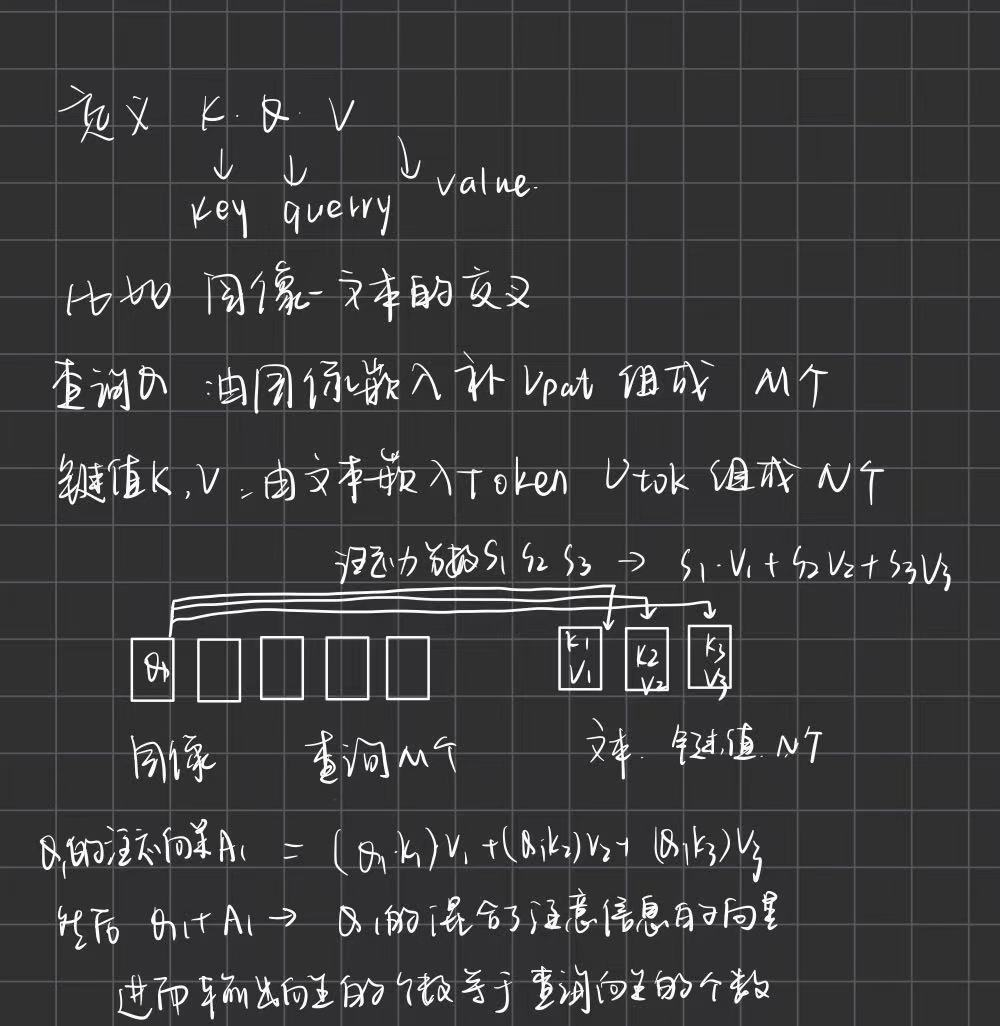 定义 K. Q. V
key querry value.
比如 图像-文本的交叉
查询Q :由图像嵌入补 Vpat 组成 M个
键值K,V:由文本嵌入Token Vtok 组成 N个
注意力分数S1 S2 S3 → S1·V1+S2V2+S3V3
Q1 K1 V1 K2 V2 K3 V3
图像 查询M个 文本. 键值.N个
Q1的注意向量A1 = (Q1·K1)V1+(Q1K2)V2+(Q1K3)V3
然后 Q1+A1→ Q1的混合了注意信息的向量
进而输出向量的个数等于查询向量的个数